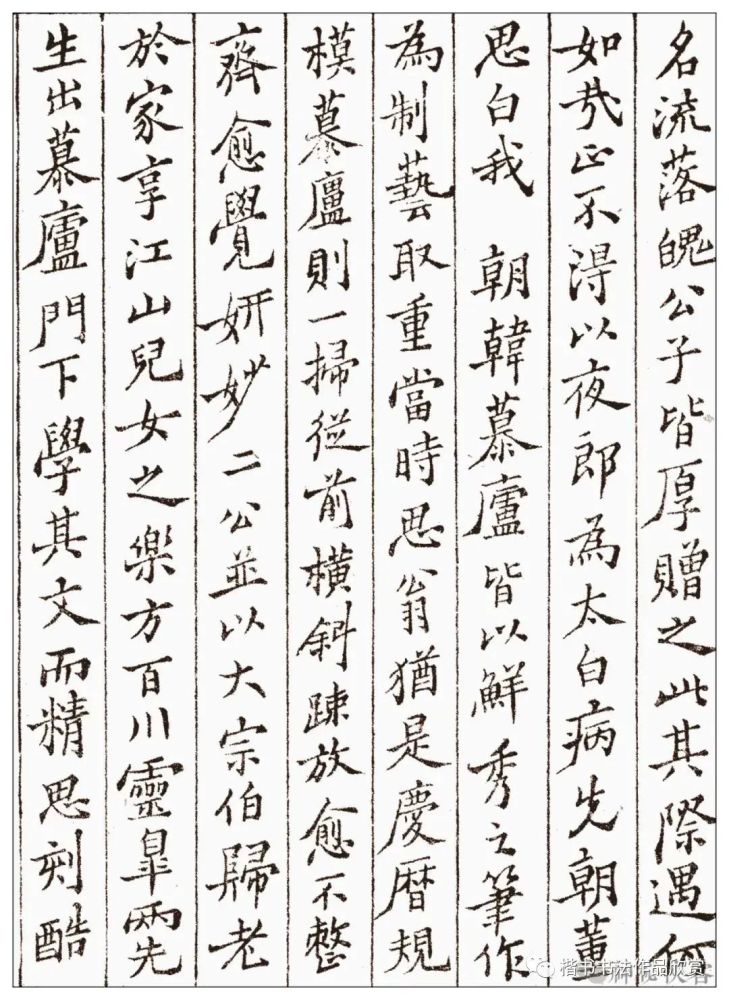 名流落魄公子皆厚贈之此其際遇何
如哉正不得以夜郎為太白病先朝董
思白我　朝韓慕廬皆以鮮秀之筆作
為制藝取重當時思翁猶是慶曆規
模慕廬則一掃從前橫斜疎放愈不整
齊愈覺妍妙二公並以大宗伯歸老
於家享江山兒女之樂方百川靈皋兩先
生出慕廬門下學其文而精思刻酷
楷书书法作品欣赏